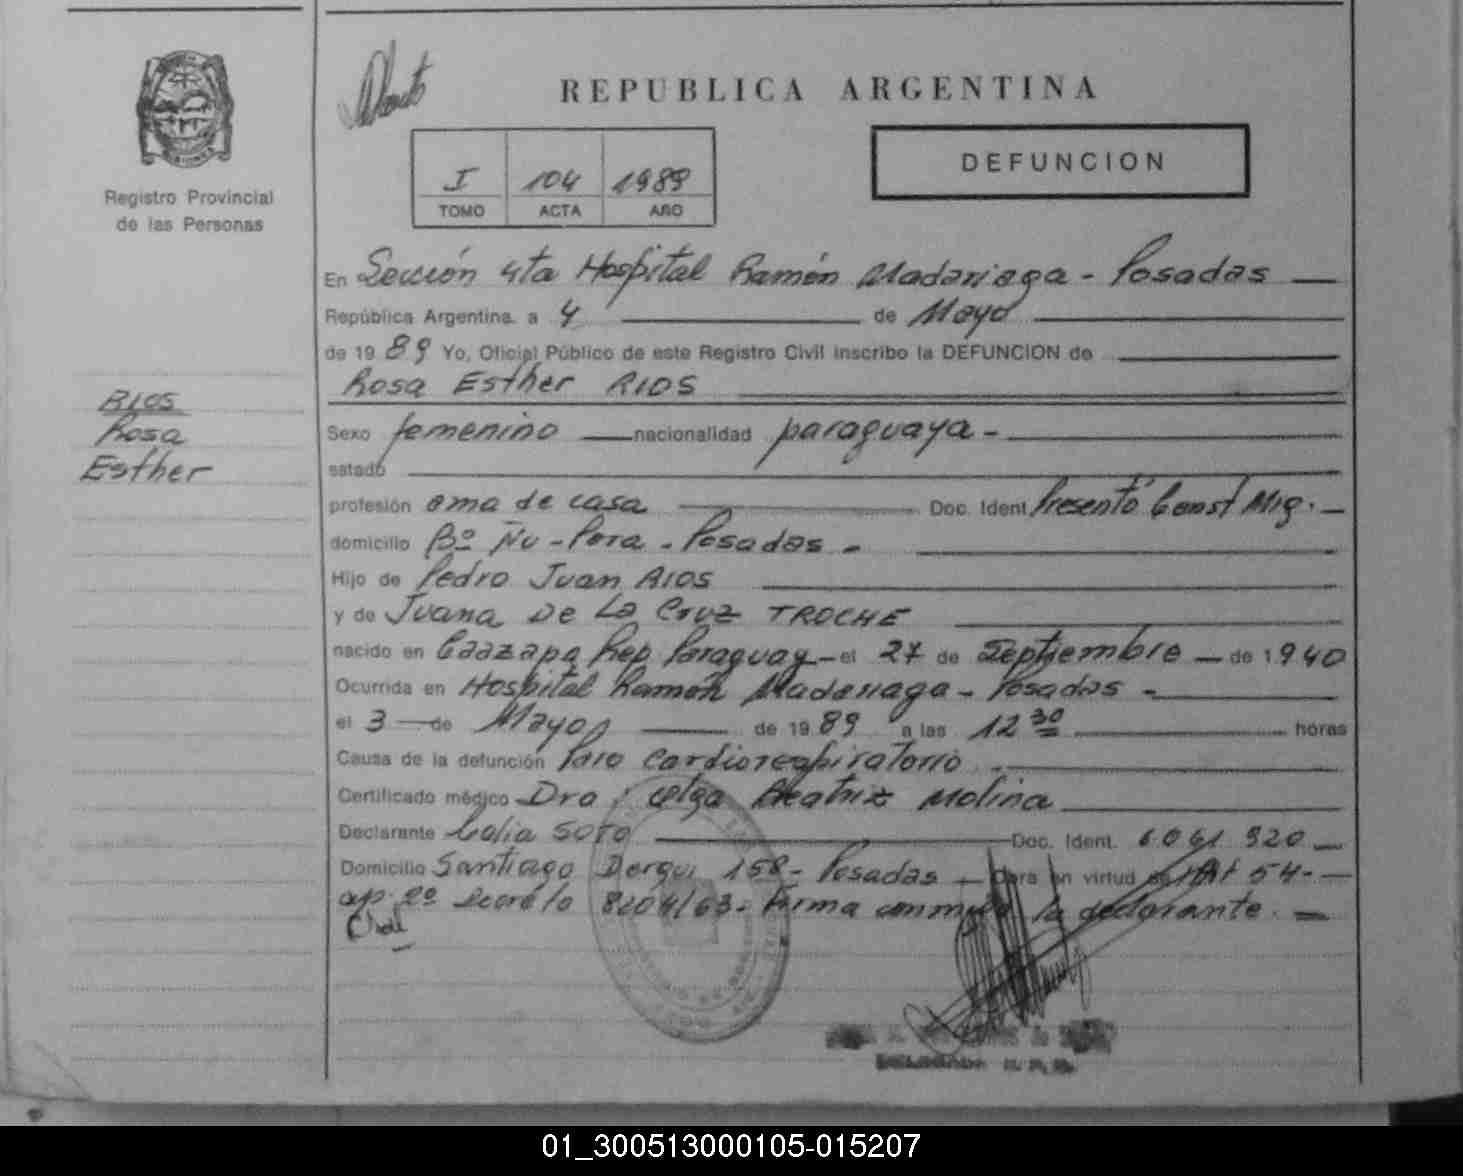 REPUBLICA ARGENTINA
DEFUNCION
I 104 1989
TOMO ACTA AÑO
Registro Provincial
de las Personas
RIOS
Rosa
Esther
En Sección 4ta Hospital Ramón Madariaga - Posadas
República Argentina a 4 de Mayo
de 19 89 Yo, Oficial Público de este Registro Civil inscribo la DEFUNCION de
Rosa Esther RIOS
Sexo femenino nacionalidad paraguaya -
estado
profesión ama de casa Doc. Ident. Presentó Const Mig.
domicilio Bº Ñu - Pora - Posadas -
Hijo de Pedro Juan RIOS
y de Juana De La Cruz TROCHE
nacido en Caazapa Rep Paraguay - el 27 de Septiembre de 1940
Ocurrida en Hospital Ramón Madariaga - Posadas -
el 3 de Mayo de 19 89 a las 12 30 horas
Causa de la defunción Paro Cardiorespiratorio
Certificado médico Dra. Olga Beatriz Molina
Declarante SOTO Doc. Ident. 6.061.920
Domicilio Santiago Derqui 158 - Posadas - Obra en virtud de 54 -
Decreto 8204/63 - Firma conmigo la declarante.
01_300513000105-015207